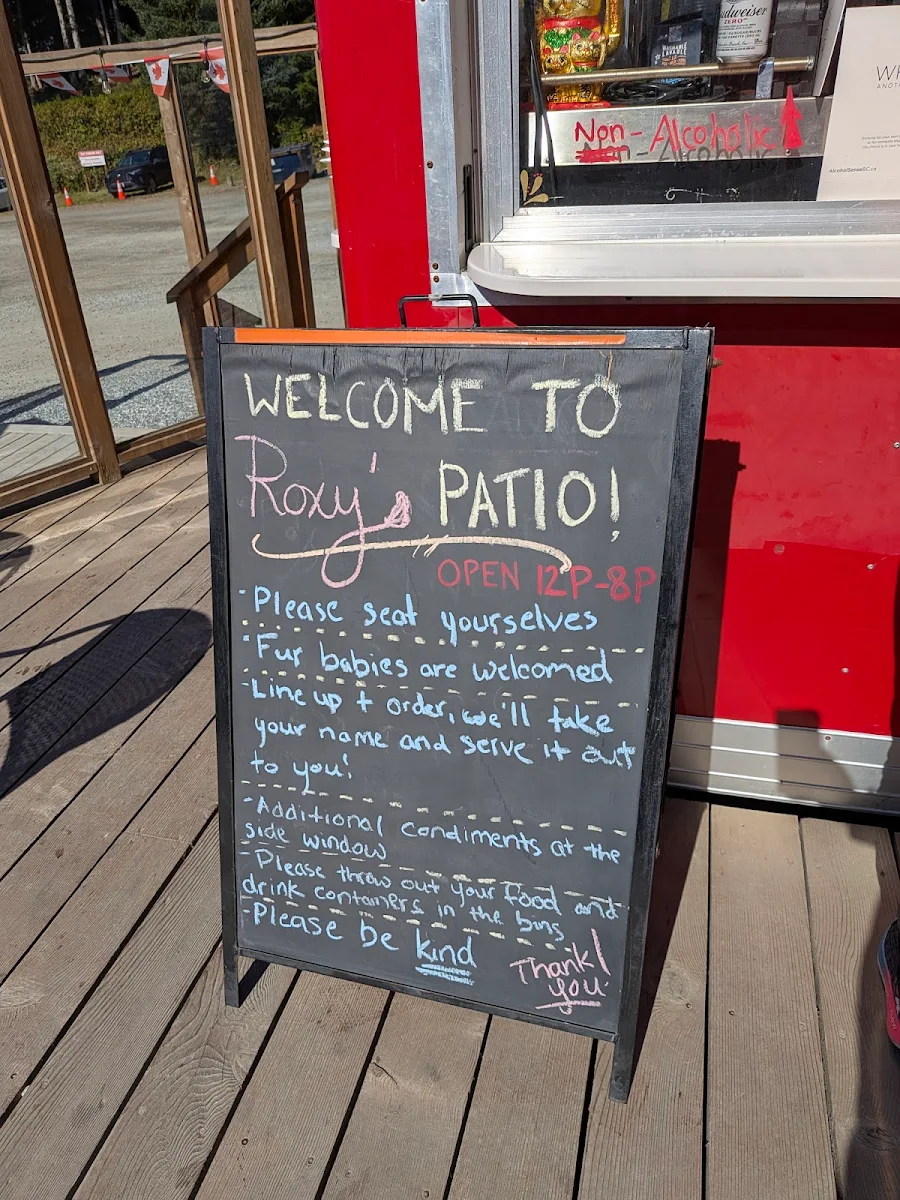 udweiser
ZERO
WASHABLE
Non - Alcoholic
WH
ANOT
AlcoholSenseBC.ca
WELCOME TO
Roxy's PATIO!
OPEN 12P-8P
-Please seat yourselves
-Fur babies are welcomed
-Line up + order, we'll take
your name and serve it out
to you!
-Additional condiments at the
side window
-Please throw out your food and
drink containers in the bins
-Please be kind
Thank
you!